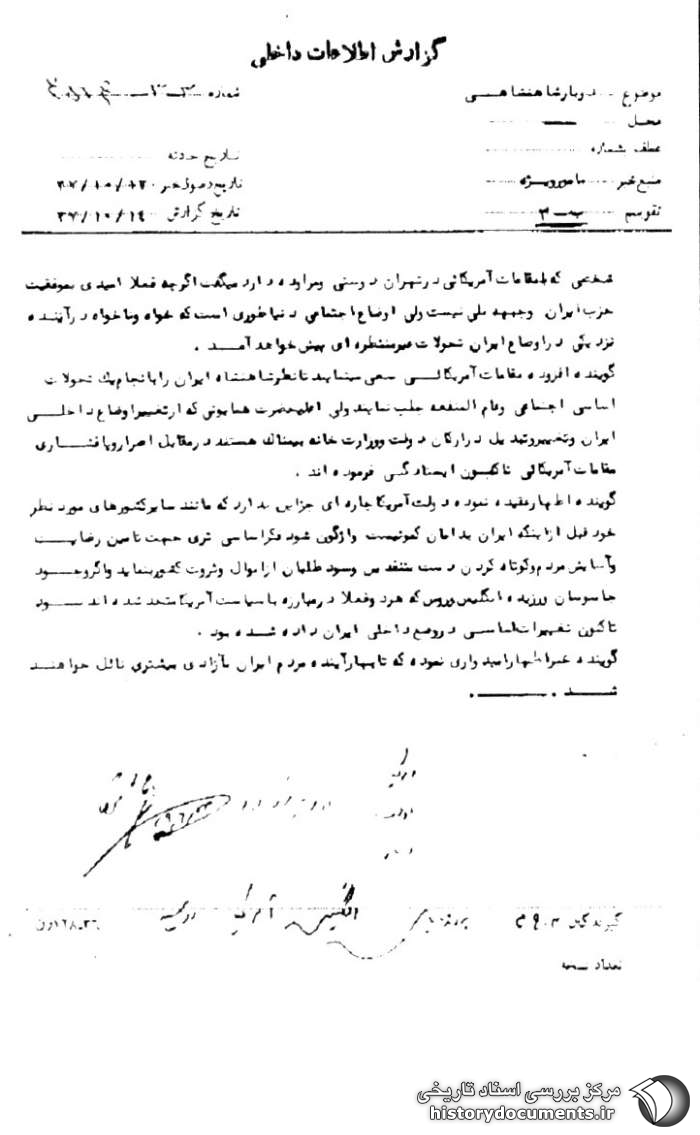 گزارش اطلاعات داخلی
موضوع دربار شاهنشاهی
شماره
محل
عطف بشماره
تاریخ حادثه
منبع خبر مامور ویژه
تاریخ وصول خبر
تقویم ب-۳
تاریخ گزارش ۳۷/۱۰/۱۴
شخصی که با مقامات آمریکائی در تهران دوستی و مراوده دارد میگفت اگرچه فعلا امیدی بموفقیت
حزب ایران و جبهه ملی نیست ولی اوضاع اجتماعی دنیا طوری است که خواه و ناخواه در آینده
نزدیکی در اوضاع ایران تحولات غیرمنتظره ای پیش خواهد آمد .
گوینده افزوده مقامات آمریکائی سعی مینمایند تا نظر شاهنشاه ایران را بانجام یک تحولات
اساسی اجتماعی و عام المنفعه جلب نمایند ولی اعلیحضرت همایونی که از تغییر اوضاع داخلی
ایران و تغییر و تبدیل در ارکان دولت و وزارت خانه بیمناک هستند در مقابل اصرار و پافشاری
مقامات آمریکائی تاکنون ایستادگی فرموده اند .
گوینده اظهار عقیده نموده دولت آمریکا چاره ای جز این ندارد که مانند سایر کشورهای مورد نظر
خود قبل از اینکه ایران بدامان کمونیست واژگون شود فکر اساسی تری جهت تامین رضایت
و آسایش مردم و کوتاه کردن دست متنفذین و سود طلبان از اموال و ثروت کشور بنماید و اگر وجود
جاسوسان ورزیده انگلیس و روس که هر دو فعلا در مبارزه با سیاست آمریکا متحد شده اند نبود
تاکنون تغییرات اساسی در وضع داخلی ایران داده شده بود .
گوینده ضمنا اظهار امیدواری نموده که تا بهار آینده مردم ایران بآزادی بیشتری نائل خواهند
شد .
گیرندگان
انگلیس آمریکا روسیه
تعداد نسخه
مرکز بررسی اسناد تاریخی
historydocuments.ir